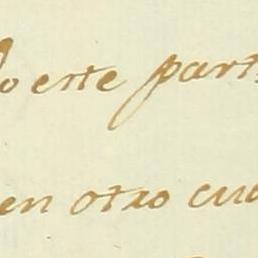 o este part
en otro cua